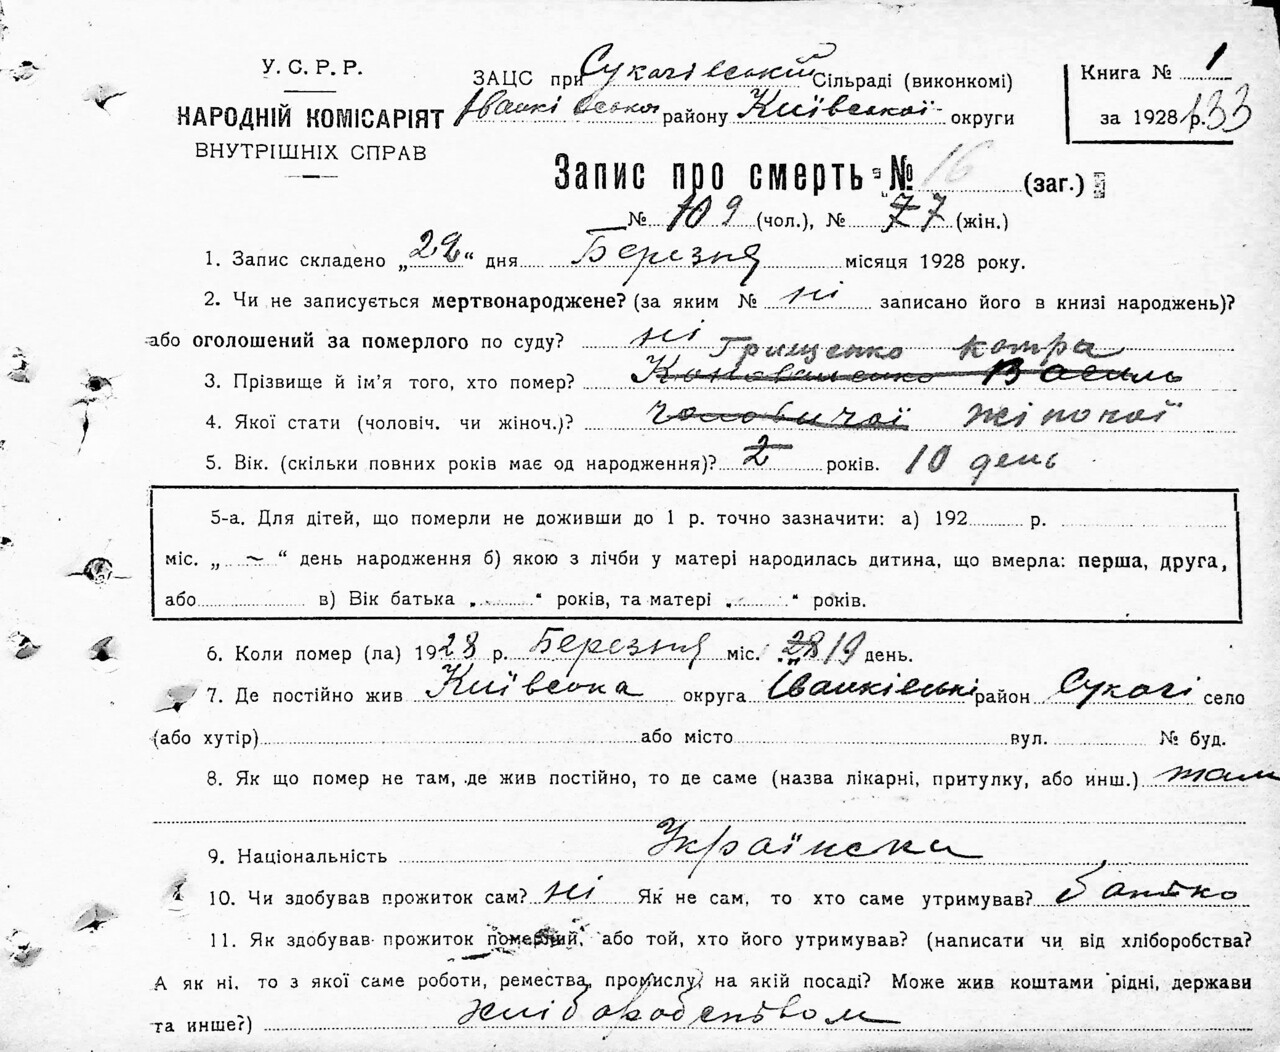 У. С. Р. Р.
НАРОДНІЙ КОМІСАРІЯТ
ВНУТРІШНІХ СПРАВ
ЗАЦС при Сукачівській Сільраді (виконкомі)
Іванківської району Київської округи
Книга № 1
за 1928 р. 133
Запис про смерть № 16 (заг.)
№ 10 9 (чол.), № 7 7 (жін.)
1. Запис складено „22“ дня Березня місяця 1928 року.
2. Чи не записується мертвонароджене? (за яким № ні записано його в книзі народжень)?
або оголошений за померлого по суду? ні
Грищенко Котра
3. Прізвище й ім'я того, хто помер? Коноваленко Василь
4. Якої стати (чоловіч. чи жіноч.)? чоловичої жіночої
5. Вік. (скільки повних років має од народження)? 2 років. 10 день
5-а. Для дітей, що померли не доживши до 1 р. точно зазначити: а) 192 р.
міс. „ ~ “ день народження б) якою з лічби у матері народилась дитина, що вмерла: перша, друга,
або в) Вік батька „ “ років, та матері „ “ років.
6. Коли помер (ла) 1928 р. Березня міс. 28 19 день.
7. Де постійно жив Київська округа Іванківські район Сукачі село
(або хутір) або місто вул. № буд.
8. Як що помер не там, де жив постійно, то де саме (назва лікарні, притулку, або инш.) там
9. Національність Українська
10. Чи здобував прожиток сам? ні Як не сам, то хто саме утримував? батько
11. Як здобував прожиток померлий, або той, хто його утримував? (написати чи від хліборобства?
А як ні, то з якої саме роботи, ремества, промислу, на якій посаді? Може жив коштами рідні, держави
та инше?) хліборобством